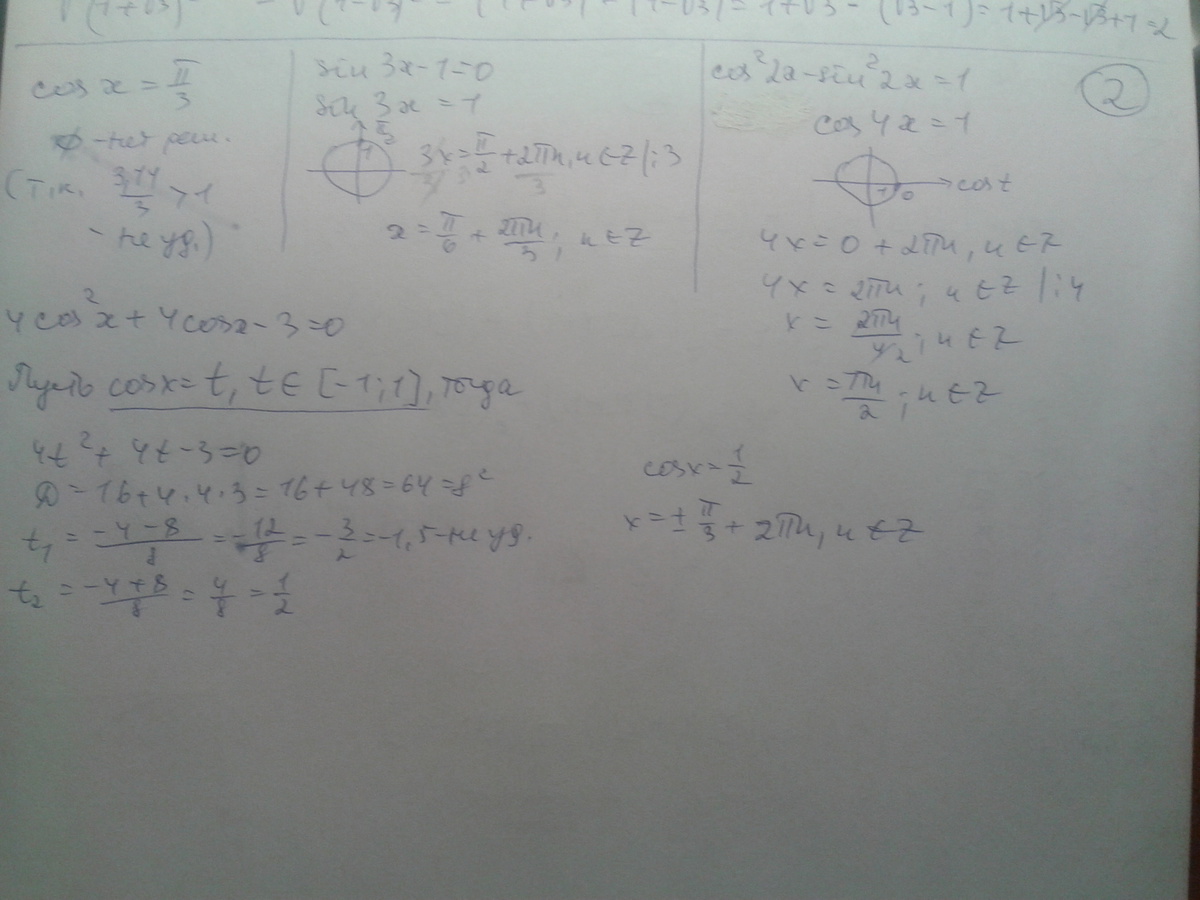 √(1+√3)² - √(1-√3)² = |1+√3| - |1-√3| = 1+√3 - (√3-1) = 1+√3-√3+1=2
2
cos x = π/3
∅ - нет реш.
(т.к. 3,14/3 > 1
- не уд.)
sin 3x-1=0
sin 3x = 1
π/2
1
3x = π/2 + 2πn, n ∈ Z |:3
x = π/6 + 2πn/3; n ∈ Z
cos²2x - sin²2x = 1
cos 4x = 1
1 0 cos t
4x = 0 + 2πn, n ∈ Z
4x = 2πn; n ∈ Z |:4
x = 2πn/4 2; n ∈ Z
x = πn/2; n ∈ Z
4cos²x + 4cosx - 3 = 0
Пусть cosx = t, t ∈ [-1;1], тогда
4t² + 4t - 3 = 0
D = 16+4·4·3 = 16+48 = 64 = 8²
t₁ = (-4-8)/8 = -12/8 = -3/2 = -1,5 - не уд.
t₂ = (-4+8)/8 = 4/8 = 1/2
cosx = 1/2
x = ± π/3 + 2πn, n ∈ Z